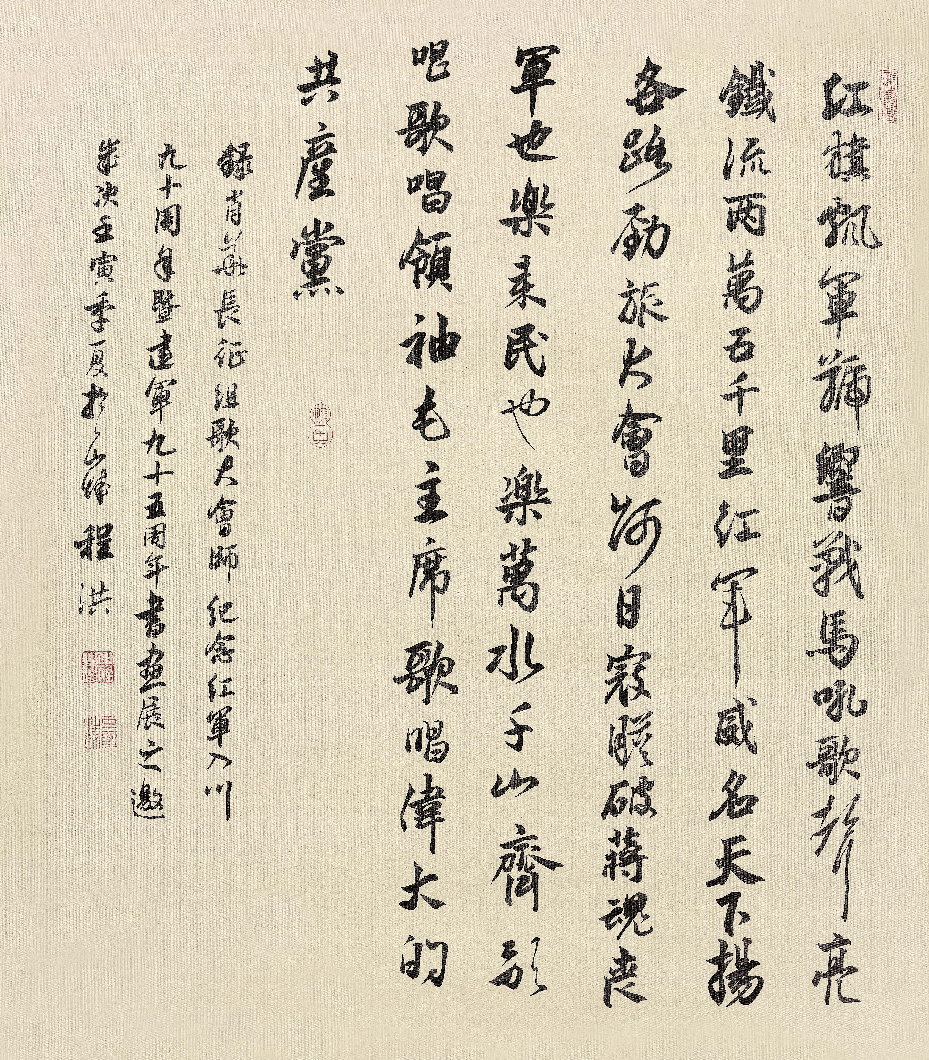 紅旗飄軍號響戰馬吼歌聲亮
鐵流兩萬五千里紅軍威名天下揚
各路勁旅大會師日寇膽破蔣魂喪
軍也樂來民也樂萬水千山齊歌
唱歌唱領袖毛主席歌唱偉大的
共產黨
錄肖華長征組歌大會師紀念紅軍入川
九十周年暨建軍九十五周年書畫展之邀
歲次壬寅季夏於山城程洪